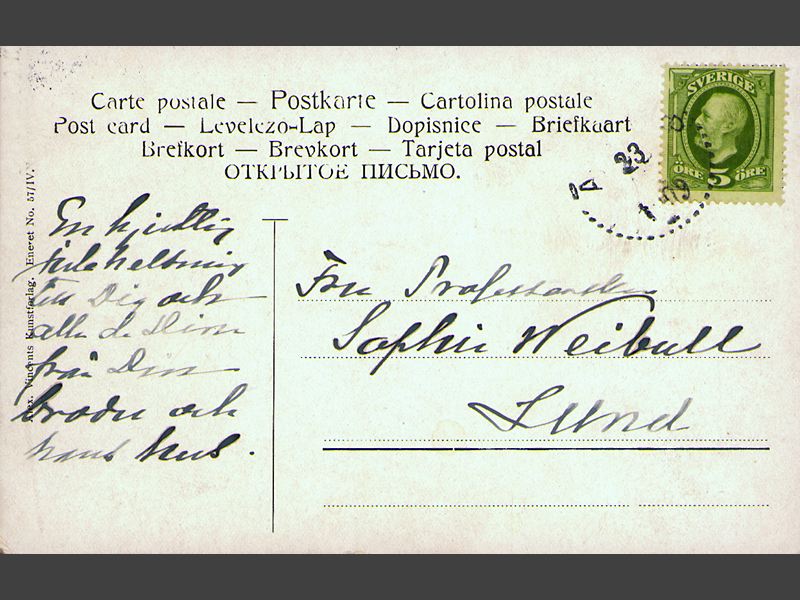 Carte postale — Postkarte — Cartolina postale
Post card — Levelező-Lap — Dopisnice — Briefkaart
Brefkort — Brevkort — Tarjeta postal
ОТКРЫТОЕ ПИСЬМО.
SVERIGE
ÖRE 5 ÖRE
23
Alex. Vincents Kunstforlag. Eneret No. 57/IV.
En hjertlig
julehelsning
till Dig och
alla de Dina
från Din
broder och
hans hus.
Fru Professorskan
Sophie Weibull
Lund